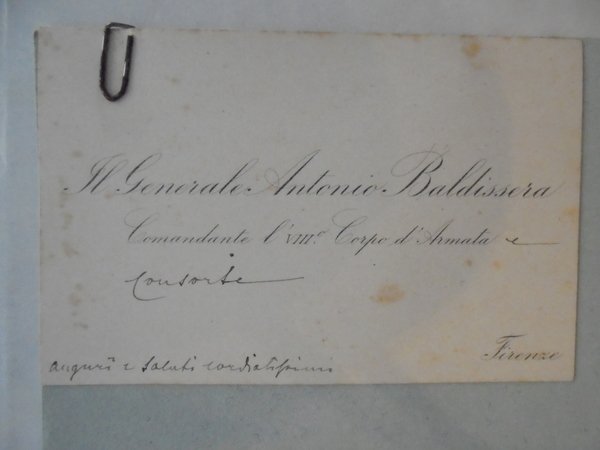 Il Generale Antonio Baldissera
Comandante l'VIIIº Corpo d'Armata e
Consorte
Firenze
auguri e saluti cordialissimi